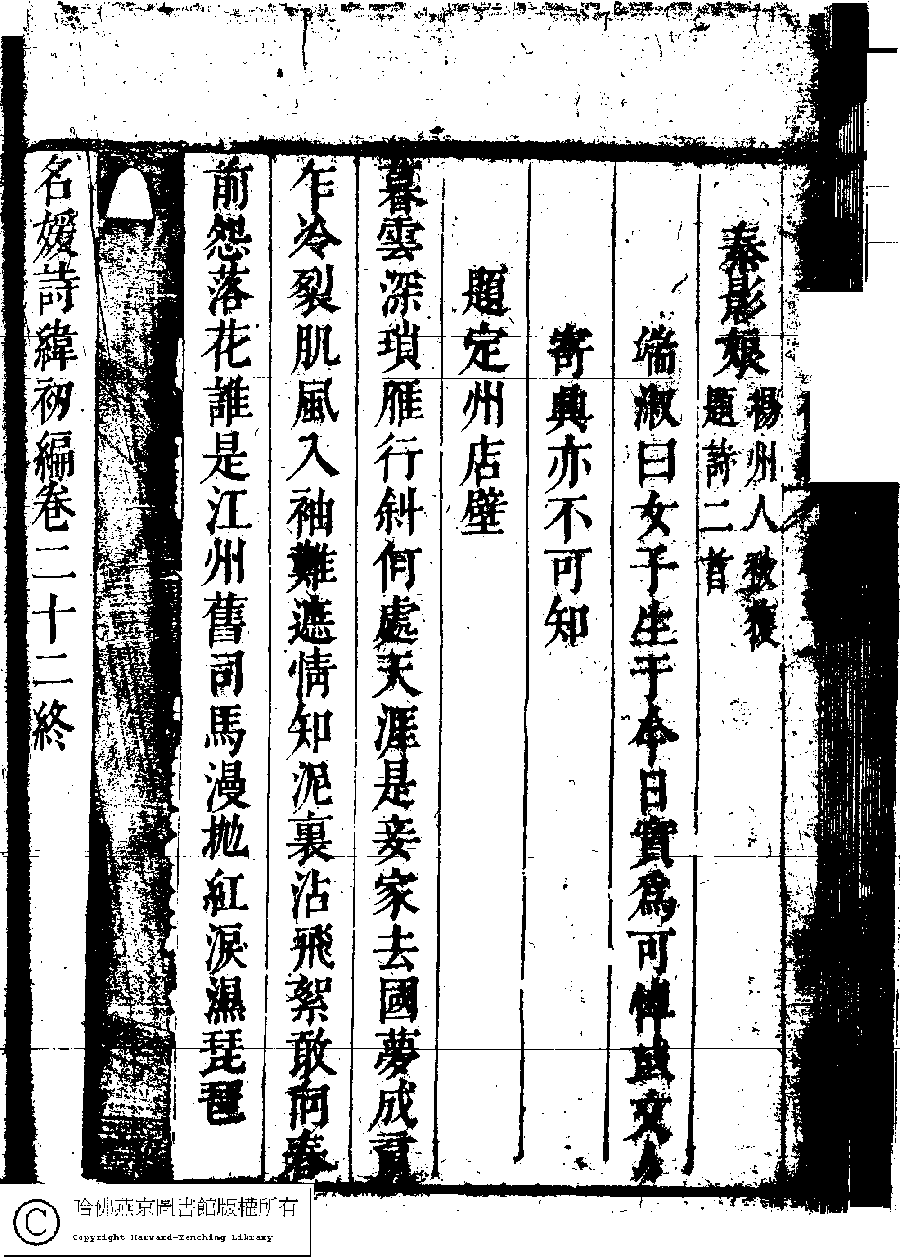 秦影娘
揚州人
題詩二首
端淑曰女子生于今日實爲可悼文人
寄興亦不可知
題定州店壁
暮雲深瑣雁行斜何處天涯是妾家去國夢成肩
乍冷裂肌風入袖難遮情知泥裏沾飛絮敢向春
前怨落花誰是江州舊司馬漫拋紅淚濕琵琶
名媛詩緯初編卷二十二終
哈佛燕京圖書館版權所有
Copyright Harvard-Yenching Library